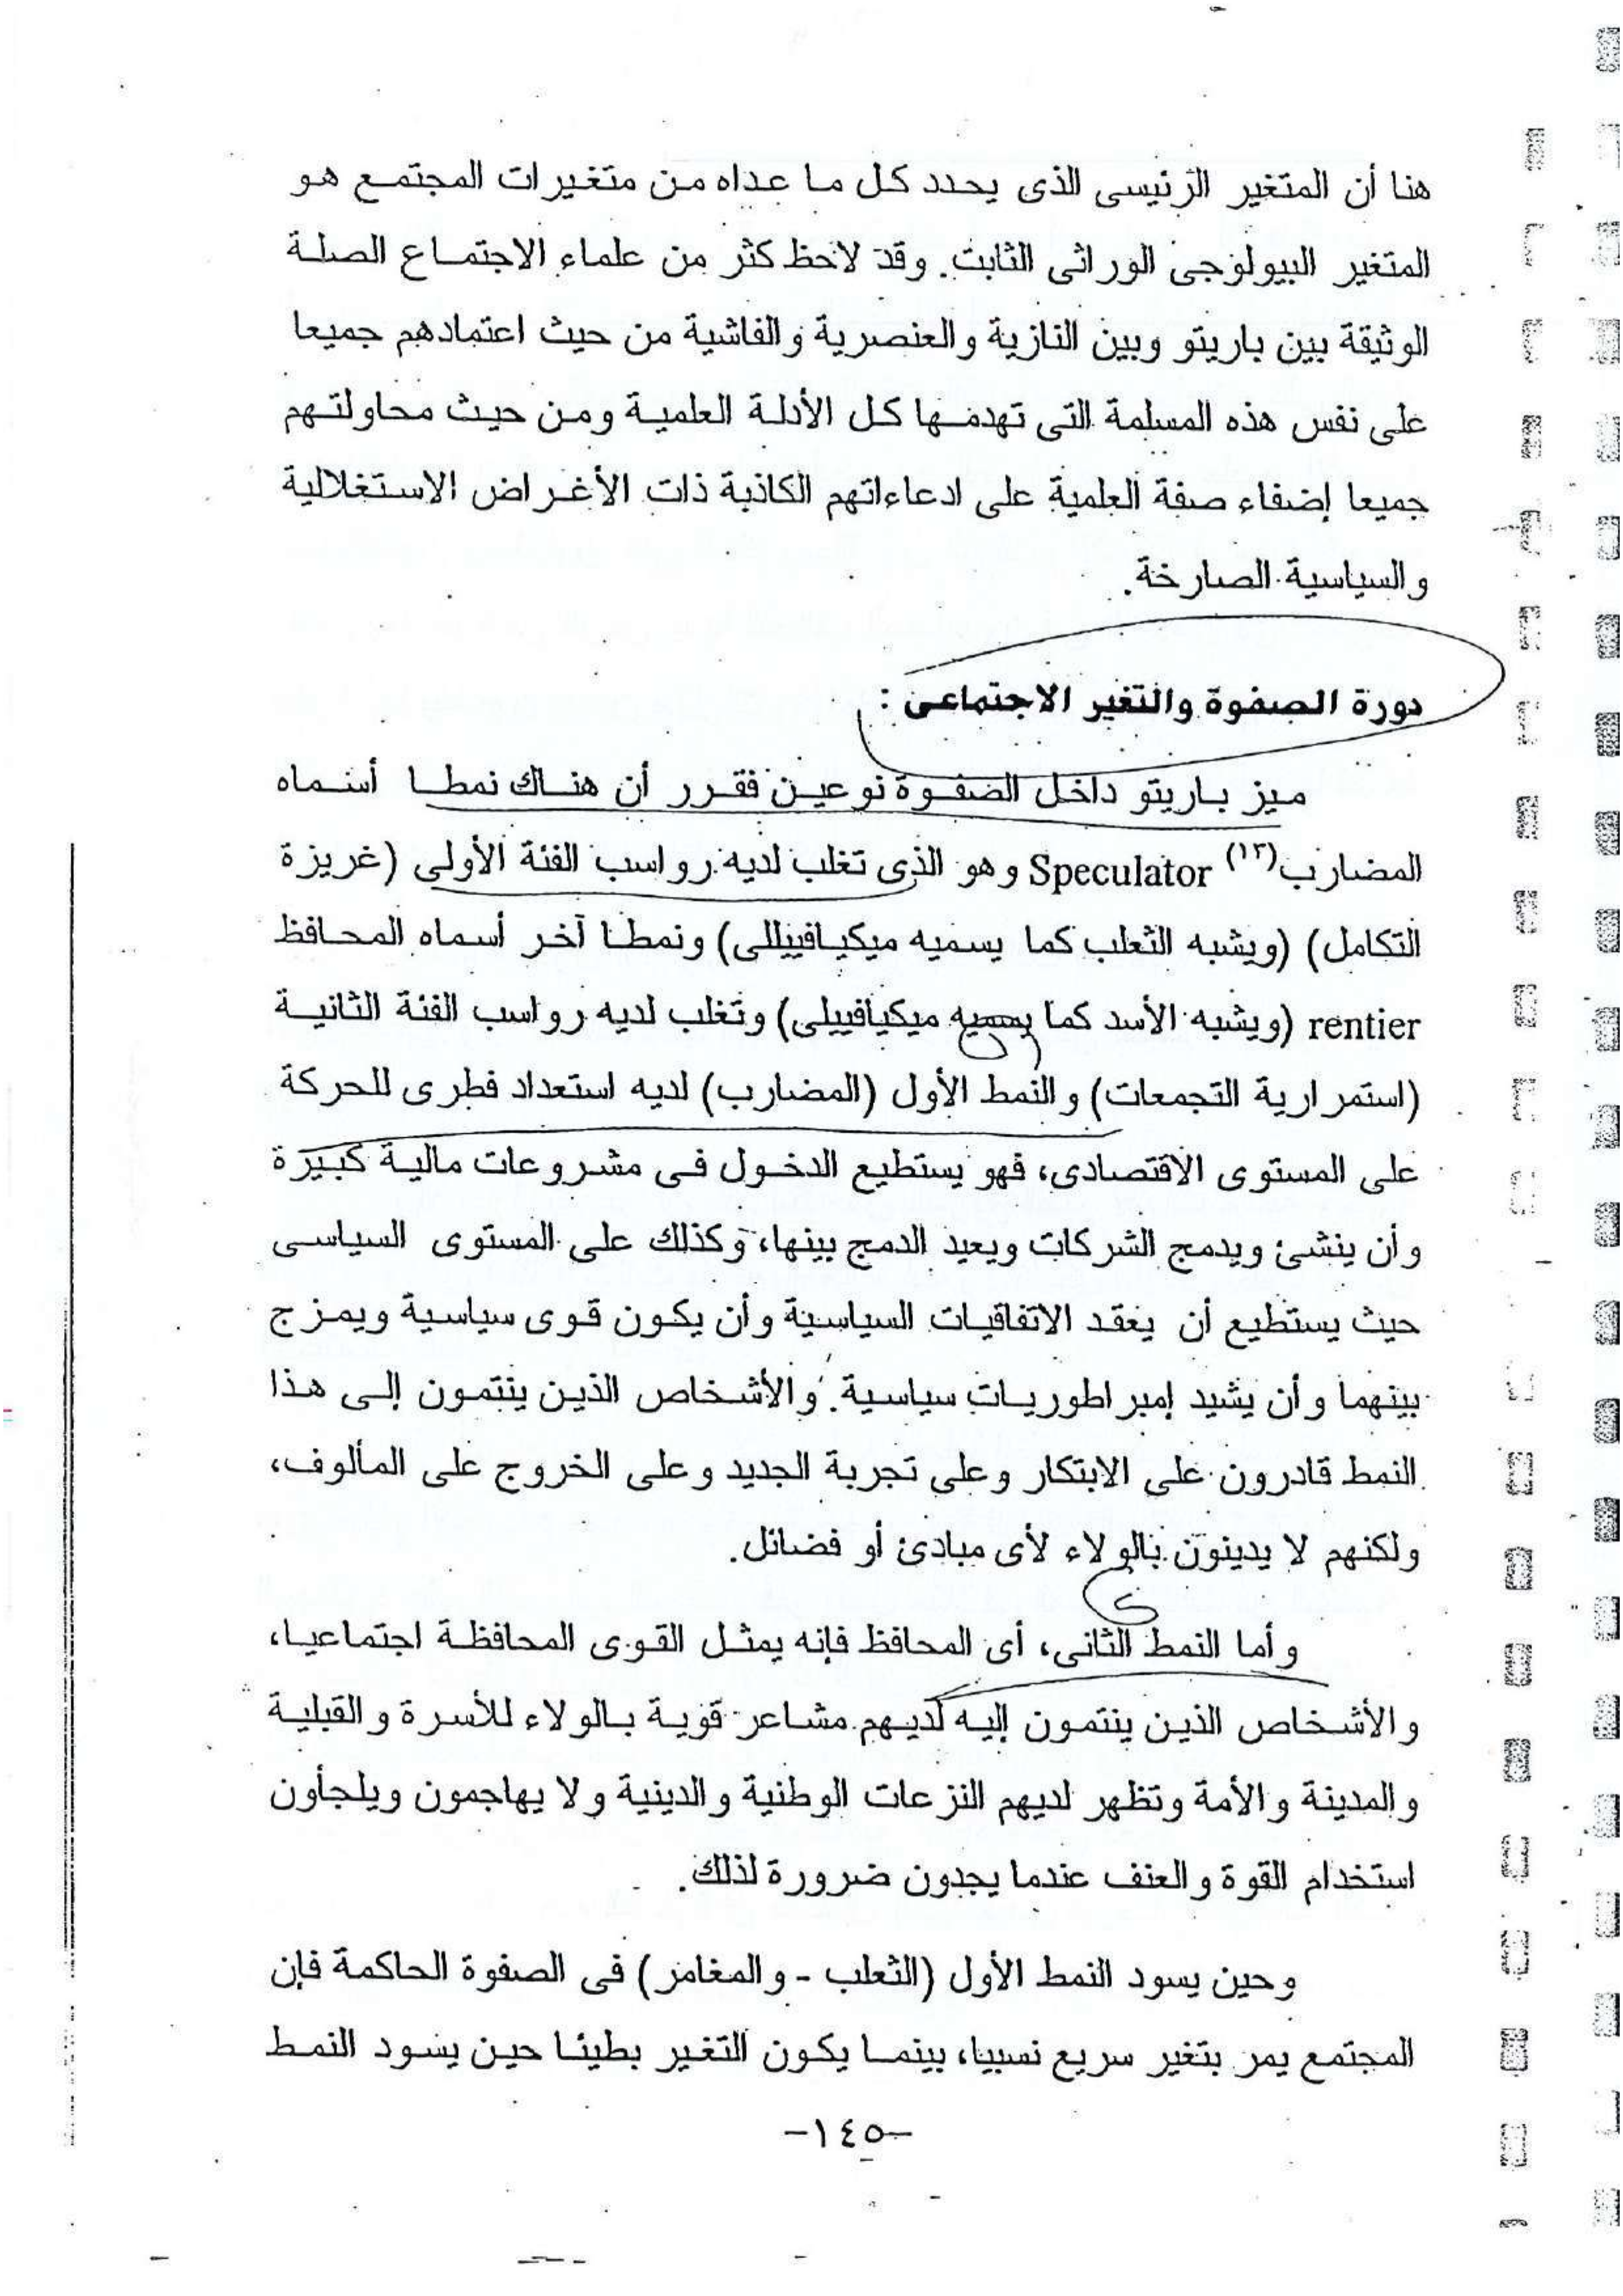 هنا أن المتغير الرئيسى الذى يحدد كل ما عداه من متغيرات المجتمع هو
المتغير البيولوجى الوراثى الثابت. وقد لاحظ كثر من علماء الاجتماع الصلة
الوثيقة بين باريتو وبين النازية والعنصرية والفاشية من حيث اعتمادهم جميعا
على نفس هذه المسلمة التى تهدمها كل الأدلة العلمية ومن حيث محاولتهم
جميعا إضفاء صفة العلمية على ادعاءاتهم الكاذبة ذات الأغراض الاستغلالية
والسياسية الصارخة.
دورة الصفوة والتغير الاجتماعى :
ميز باريتو داخل الصفوة نوعين فقرر أن هناك نمطا أسماه
المضارب(١٣) Speculator وهو الذى تغلب لديه رواسب الفئة الأولى (غريزة
التكامل) (ويشبه الثعلب كما يسميه ميكيافييللى) ونمطا آخر أسماه المحافظ
rentier (ويشبه الأسد كما يسميه ميكيافييلى) وتغلب لديه رواسب الفئة الثانية
(استمرارية التجمعات) والنمط الأول (المضارب) لديه استعداد فطرى للحركة
على المستوى الاقتصادى، فهو يستطيع الدخول فى مشروعات مالية كبيرة
وأن ينشئ ويدمج الشركات ويعيد الدمج بينها، وكذلك على المستوى السياسى
حيث يستطيع أن يعقد الاتفاقيات السياسية وأن يكون قوى سياسية ويمزج
بينهما وأن يشيد إمبراطوريات سياسية. والأشخاص الذين ينتمون إلى هذا
النمط قادرون على الابتكار وعلى تجربة الجديد وعلى الخروج على المألوف،
ولكنهم لا يدينون بالولاء لأى مبادئ أو فضائل.
وأما النمط الثانى، أى المحافظ فإنه يمثل القوى المحافظة اجتماعيا،
والأشخاص الذين ينتمون إليه لديهم مشاعر قوية بالولاء للأسرة والقبلية
والمدينة والأمة وتظهر لديهم النزعات الوطنية والدينية ولا يهاجمون ويلجأون
استخدام القوة والعنف عندما يجدون ضرورة لذلك.
وحين يسود النمط الأول (الثعلب - والمغامر) فى الصفوة الحاكمة فإن
المجتمع يمر بتغير سريع نسبيا، بينما يكون التغير بطيئا حين يسود النمط
-١٤٥-